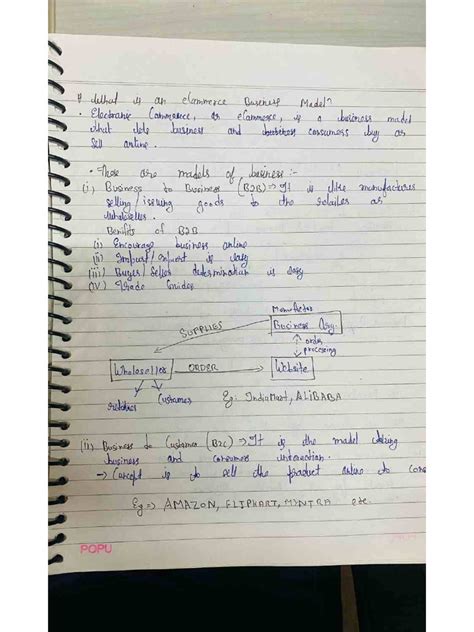 # What is an eCommerce Business Model?
• Electronic Commerce, or eCommerce, is a business model
that lets business and consumers buy or
sell online.
• These are models of business :-
(i) Business to Business (B2B) => It is like manufactures
selling / issuing goods to the retailer or
wholeseller.
Benifits of B2B
(i) Encourage business online
(ii) Import / export is easy
(iii) Buyer / Seller determination is easy
(iv) Trade Guides
SUPPLIES
Business Org.
↑ order
processing
Wholeseller
ORDER
Website
retailers
Customer
Eg: IndiaMart, ALIBABA
(ii) Business to Customer (B2C) => It is the model taking
business and consumers interaction.
→ Concept is to sell the product online to
Eg => AMAZON, FLIPKART, MYNTRA etc.
POPU